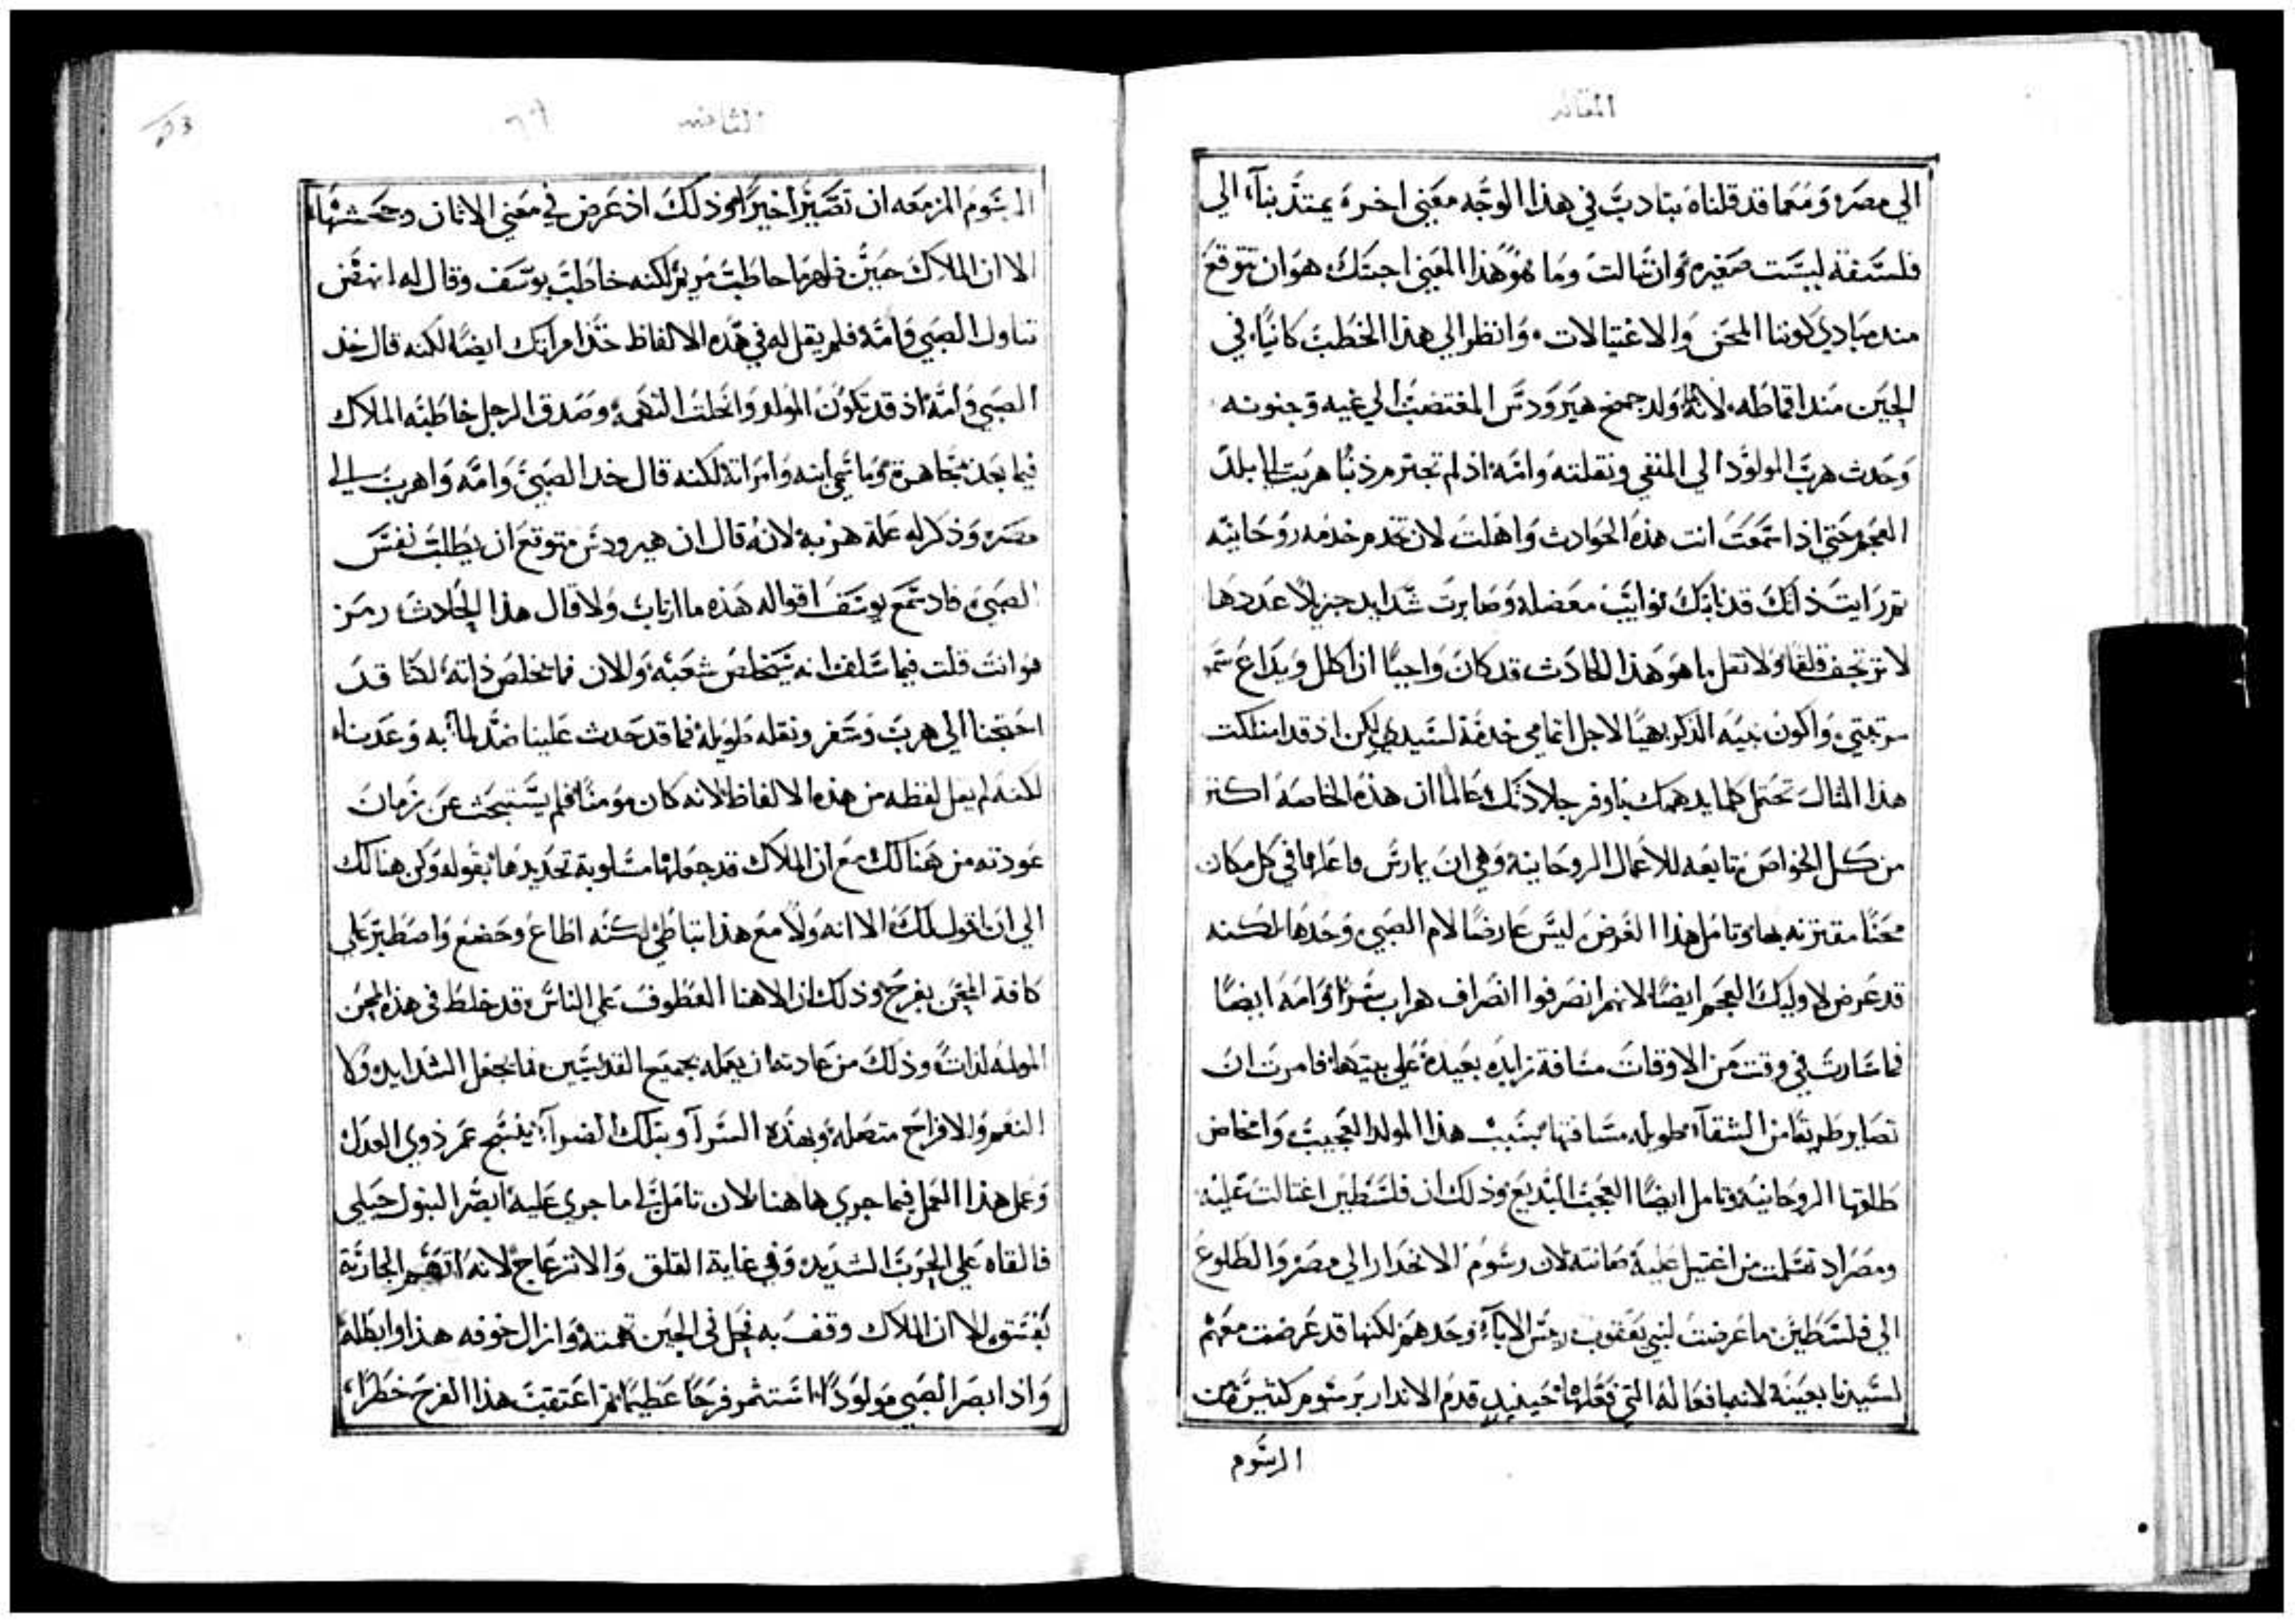 المقاله
الي مصر، ومما قد قلناه نتادب في هذا الوجه معني اخره يمتد بنا، الي
فلسفة ليست صغيره وان تمالت وما هو هذا المعني اجبتك هو ان نتوقع
منذ مبادي كوننا المحن والاغتيالات، وانظر الي هذا الخطب كاينًا، في
الحين منذ اقماطه، لانه لما ولد جمح هيرودس المغتصب الي غيه وجنونه
وحدث هرب المولود الي المنفي ونقلته وامه اذ لم تجترم ذنبًا هربت الي بلد
العجم، حتي اذا سمعت انت هذه الحوادث واهلت لان تخدم خدمه روحانيه
ثم رايت ذاتك قد نابتك نوايب معضله وصابرت شدايد جزيلاً عددها
لا ترتجف قلقًا، ولا تقل ما هو هذا الحادث قد كان واجبًا ان اكلل ويذاع سمو
مرتبتي، واكون نبيه الذكر بهيًا لاجل اتمامي خدمة لسيدي لكن اذ قد امتلكت
هذا المثال تحتمل كلما يدهمك باوفر جلادتك، عالمًا ان هذه الخاصه اكثر
من كل الخواص تابعه للاعمال الروحانيه، وهي ان يمارس فاعلها في كل مكان
محنًا مقترنه بها، وتامل هذا الغرض ليس عارضًا لام الصبي وحدها، لكنه
قد عرض لاوليك العجم ايضًا لانهم انصرفوا انصراف هراب سرًا، وامه ايضًا
فما سارت في وقت من الاوقات مسافة زايده بعيدة علي بيتها، فامرت ان
تصابر طريقًا من الشقآء طويله مسافتها بسبب هذا المولد العجيب، وامخاض
طلقها الروحانيه، وتامل ايضًا العجب البديع، وذلك ان فلسطين اغتالت عليه
ومصر اد تسلمت من اغتيل عليه صانته لان رسوم الانحدار الي مصر والطلوع
الي فلسطين ما عرضت لبني يعقوب ريس الابآء وحدهم لكنها قد عرضت معهم
لسيدنا بعينه لانه بافعاله التي فعلها حينيدٍ قدم الاندار برسوم كثيره من
الرسوم
الثامنه
الرسوم المزمعه ان تصير اخيرًا، وذلك اذ عرض في معني الاتان وجحشها،
الا ان الملاك حين ظهر ما خاطب مريم لكنه خاطب يوسف وقال له انهض
تناول الصبي وامه، فلم يقل له في هذه الالفاظ خذ امراتك ايضًا، لكنه قال خذ
الصبي وامه، اذ قد تكون المولد وانحلت التهمه، وصدق الرجل خاطبه الملاك
فيما بعد مجاهرة، وما سمي ابنه وامراته لكنه قال خد الصبي وامه واهرب الي
مصر، وذكر له علة هربه، لانه قال ان هيرودس متوقع ان يطلب نفس
الصبي، فاد سمع يوسف اقواله هذه ما ارتاب ولا قال هذا الحادث رمز
هو انت قلت فيما سلف انه سيخلص شعبه، والان فما يخلص ذاته، لكنا قد
احتجنا الي هرب وسفر ونقله طويله فما قد حدث علينا ضد لما به وعدنا،
لكنه لم يقل لفظه من هذه الالفاظ لانه كان مومنًا، فلم يستبحث عن زمان
عودته من هنالك مع ان الملاك قد جعلها مسلوبة تحديدها، بقوله وكن هنالك
الي ان اقول لك، الا انه ولا مع هذا تباطئ لكنه اطاع وخضع واصطبر علي
كافة المحن بفرح، وذلك ان الاهنا العطوف علي الناس، قد خلط في هذه المحن
المولمه لذات، وذلك من عادته ان يعمله بجميع القديسين، فما يجعل الشدايد، ولا
النعم والافراح متصله، وبهذه السرآ وبتلك الضرآ، ينسج عمر ذوي العدل
وعمل هذا العمل فيما جري ها هنا، لان تامل لي ما جري عليه، ابصر البتول حبلي
فالقاه علي الحرب الشديد، وفي غاية القلق والانزعاج لانه اتهم الجارية
بفسق، الا ان الملاك وقف به فحل في الحين تهمته وازال خوفه هذا وابطله،
واذ ابصر الصبي مولودًا، استثمر فرحًا عظيمًا، ثم اعتقب هذا الفرح خطرًا،